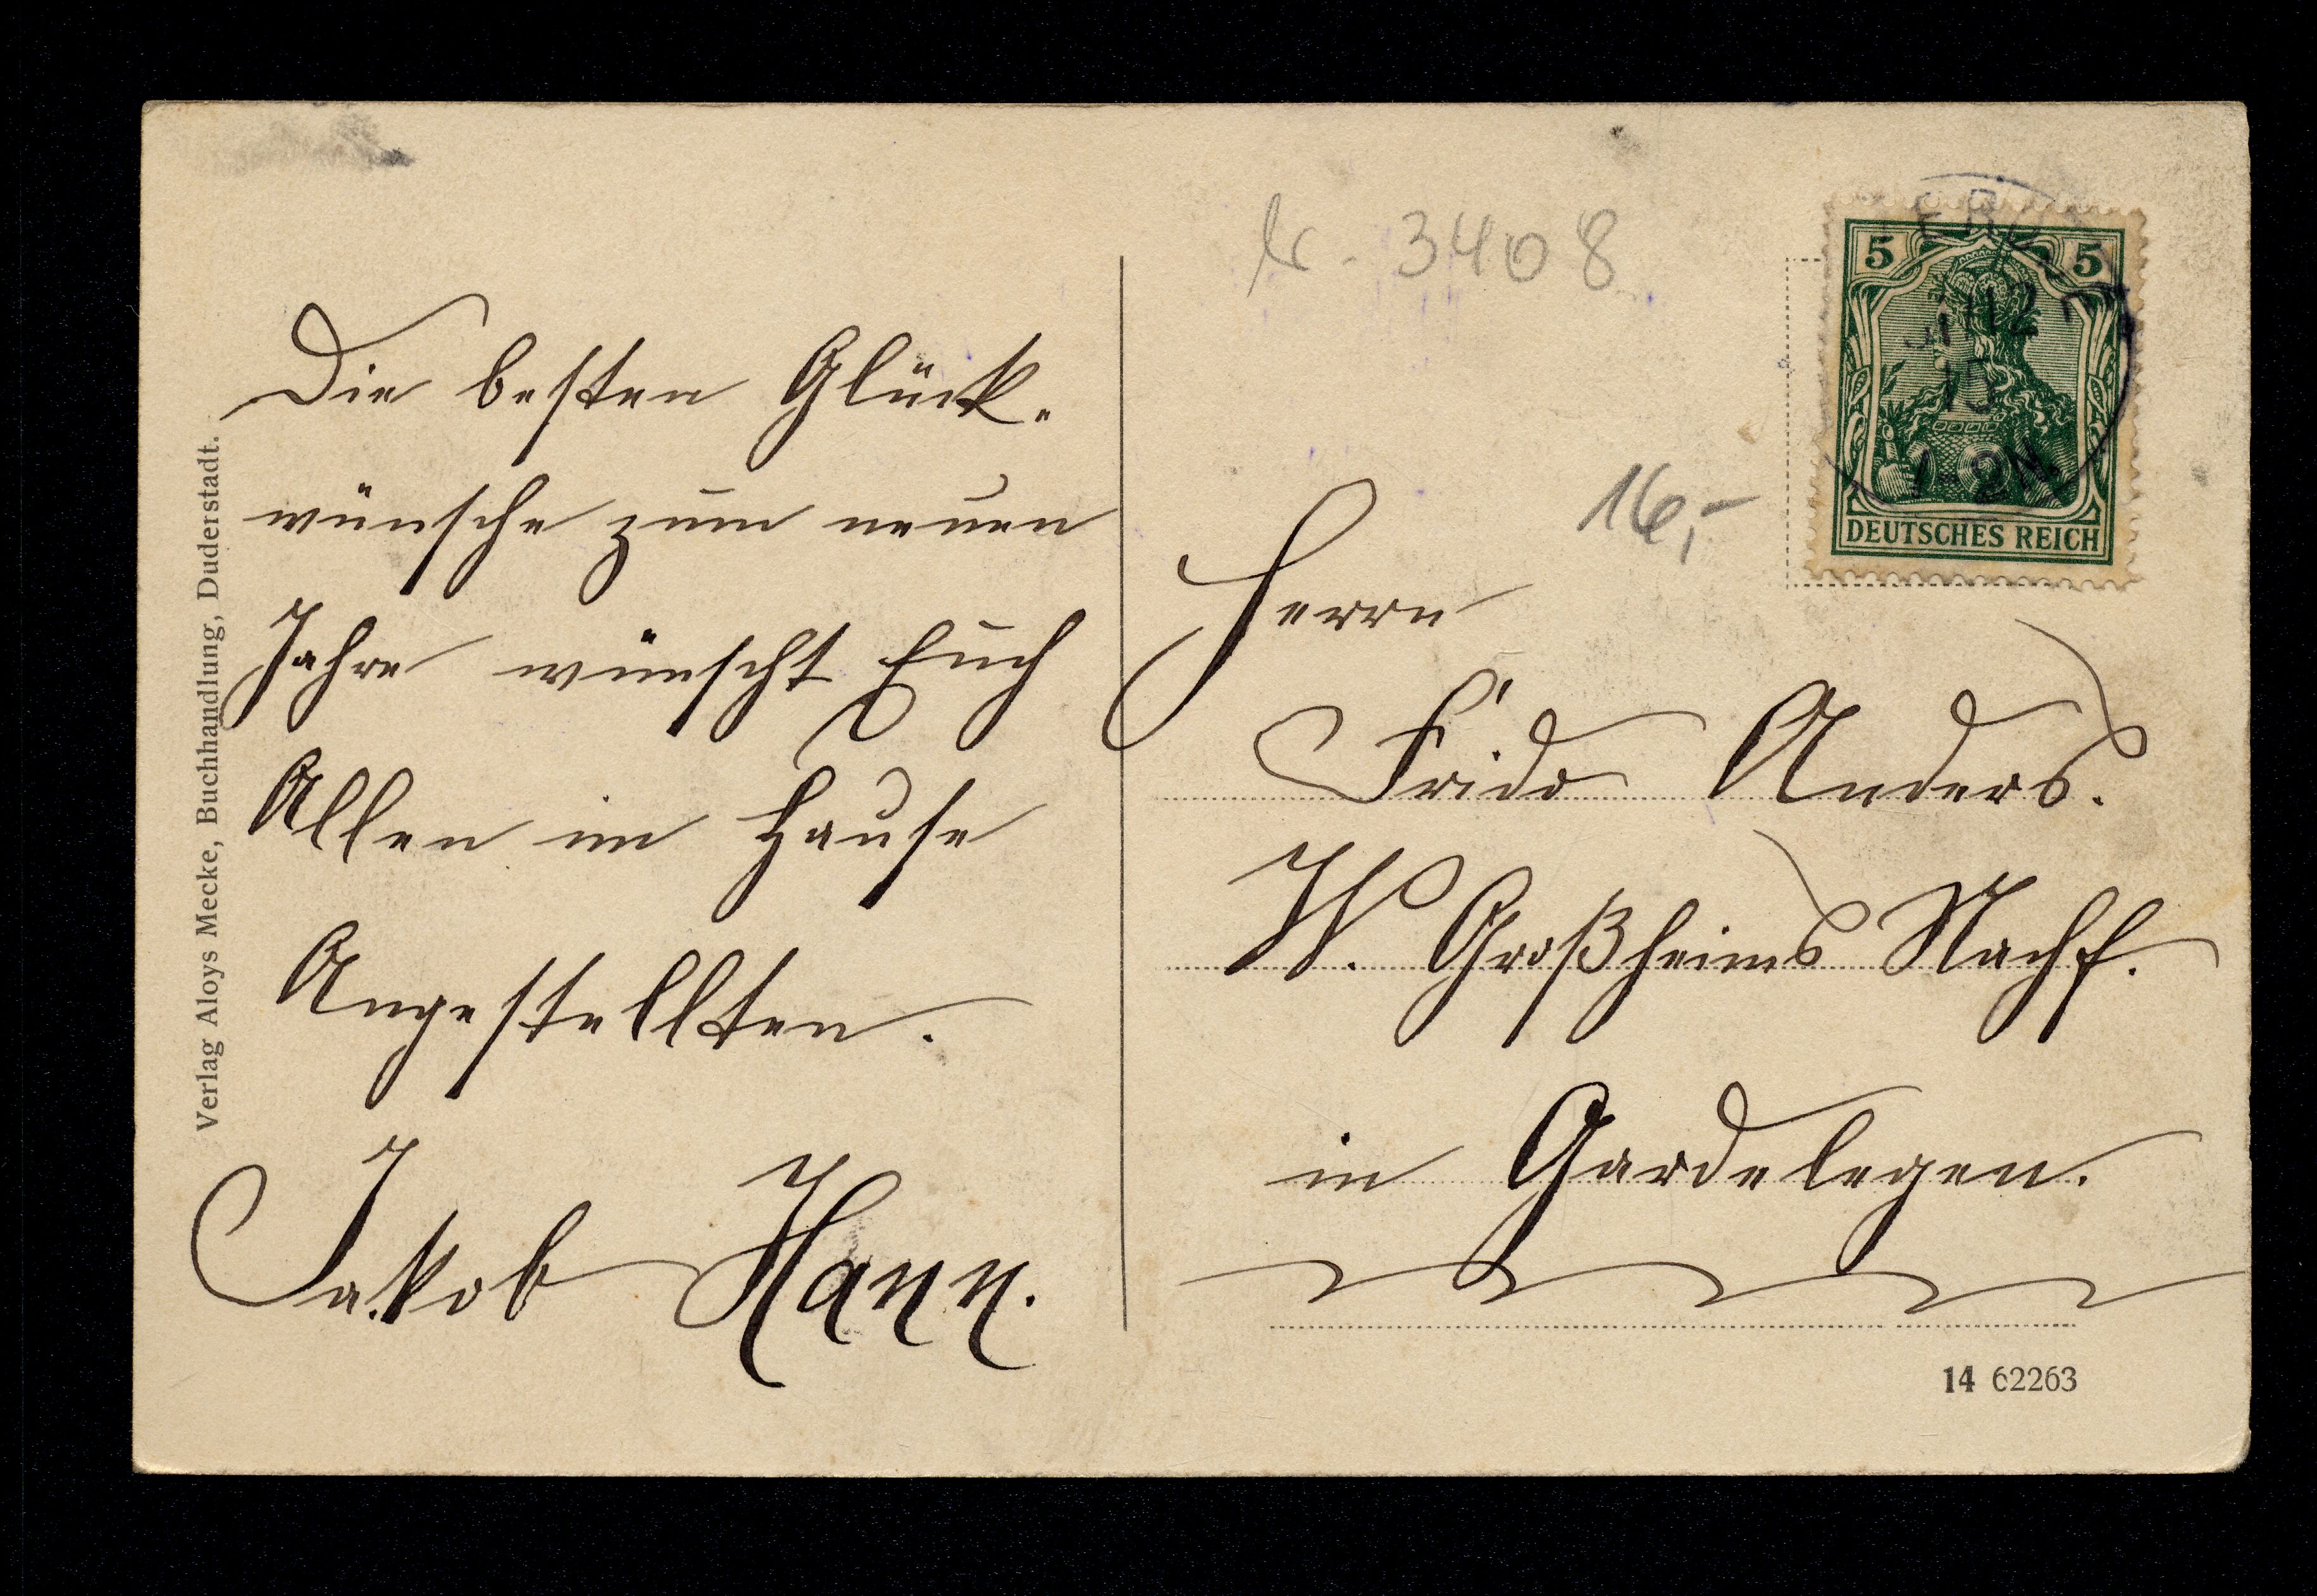 Die besten Glück-
wünsche zum neuen
Jahre wünscht Euch
Allen im Hause
Angestellten.
Jakob Hann.
Verlag Aloys Mecke, Buchhandlung, Duderstadt.
3408
16,-
5 5
DEUTSCHES REICH
31 12
15
1-2N.
Herrn
Frido Anders.
W. Großheims Nachf.
in Gardelegen.
14 62263